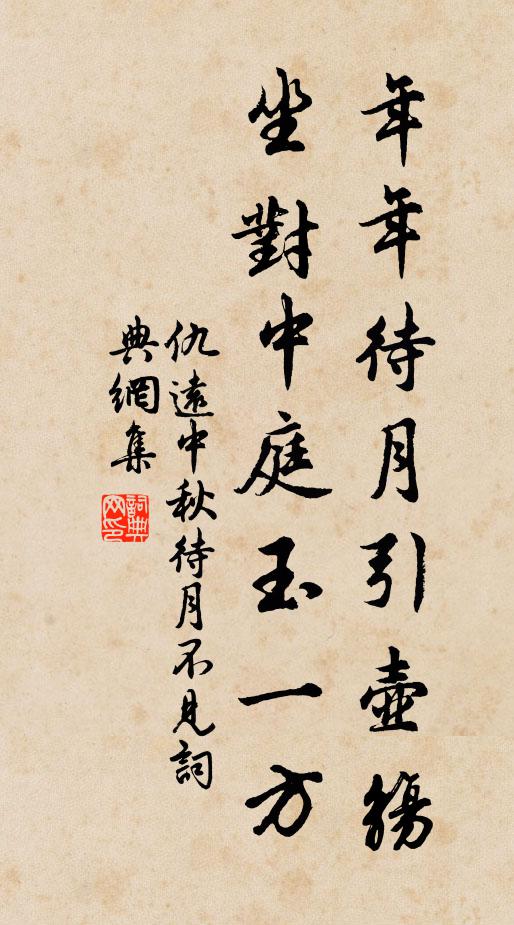 年年待月引壺觴
坐對中庭玉一方
仇遠中秋待月不見詞
典網集
詞典網印